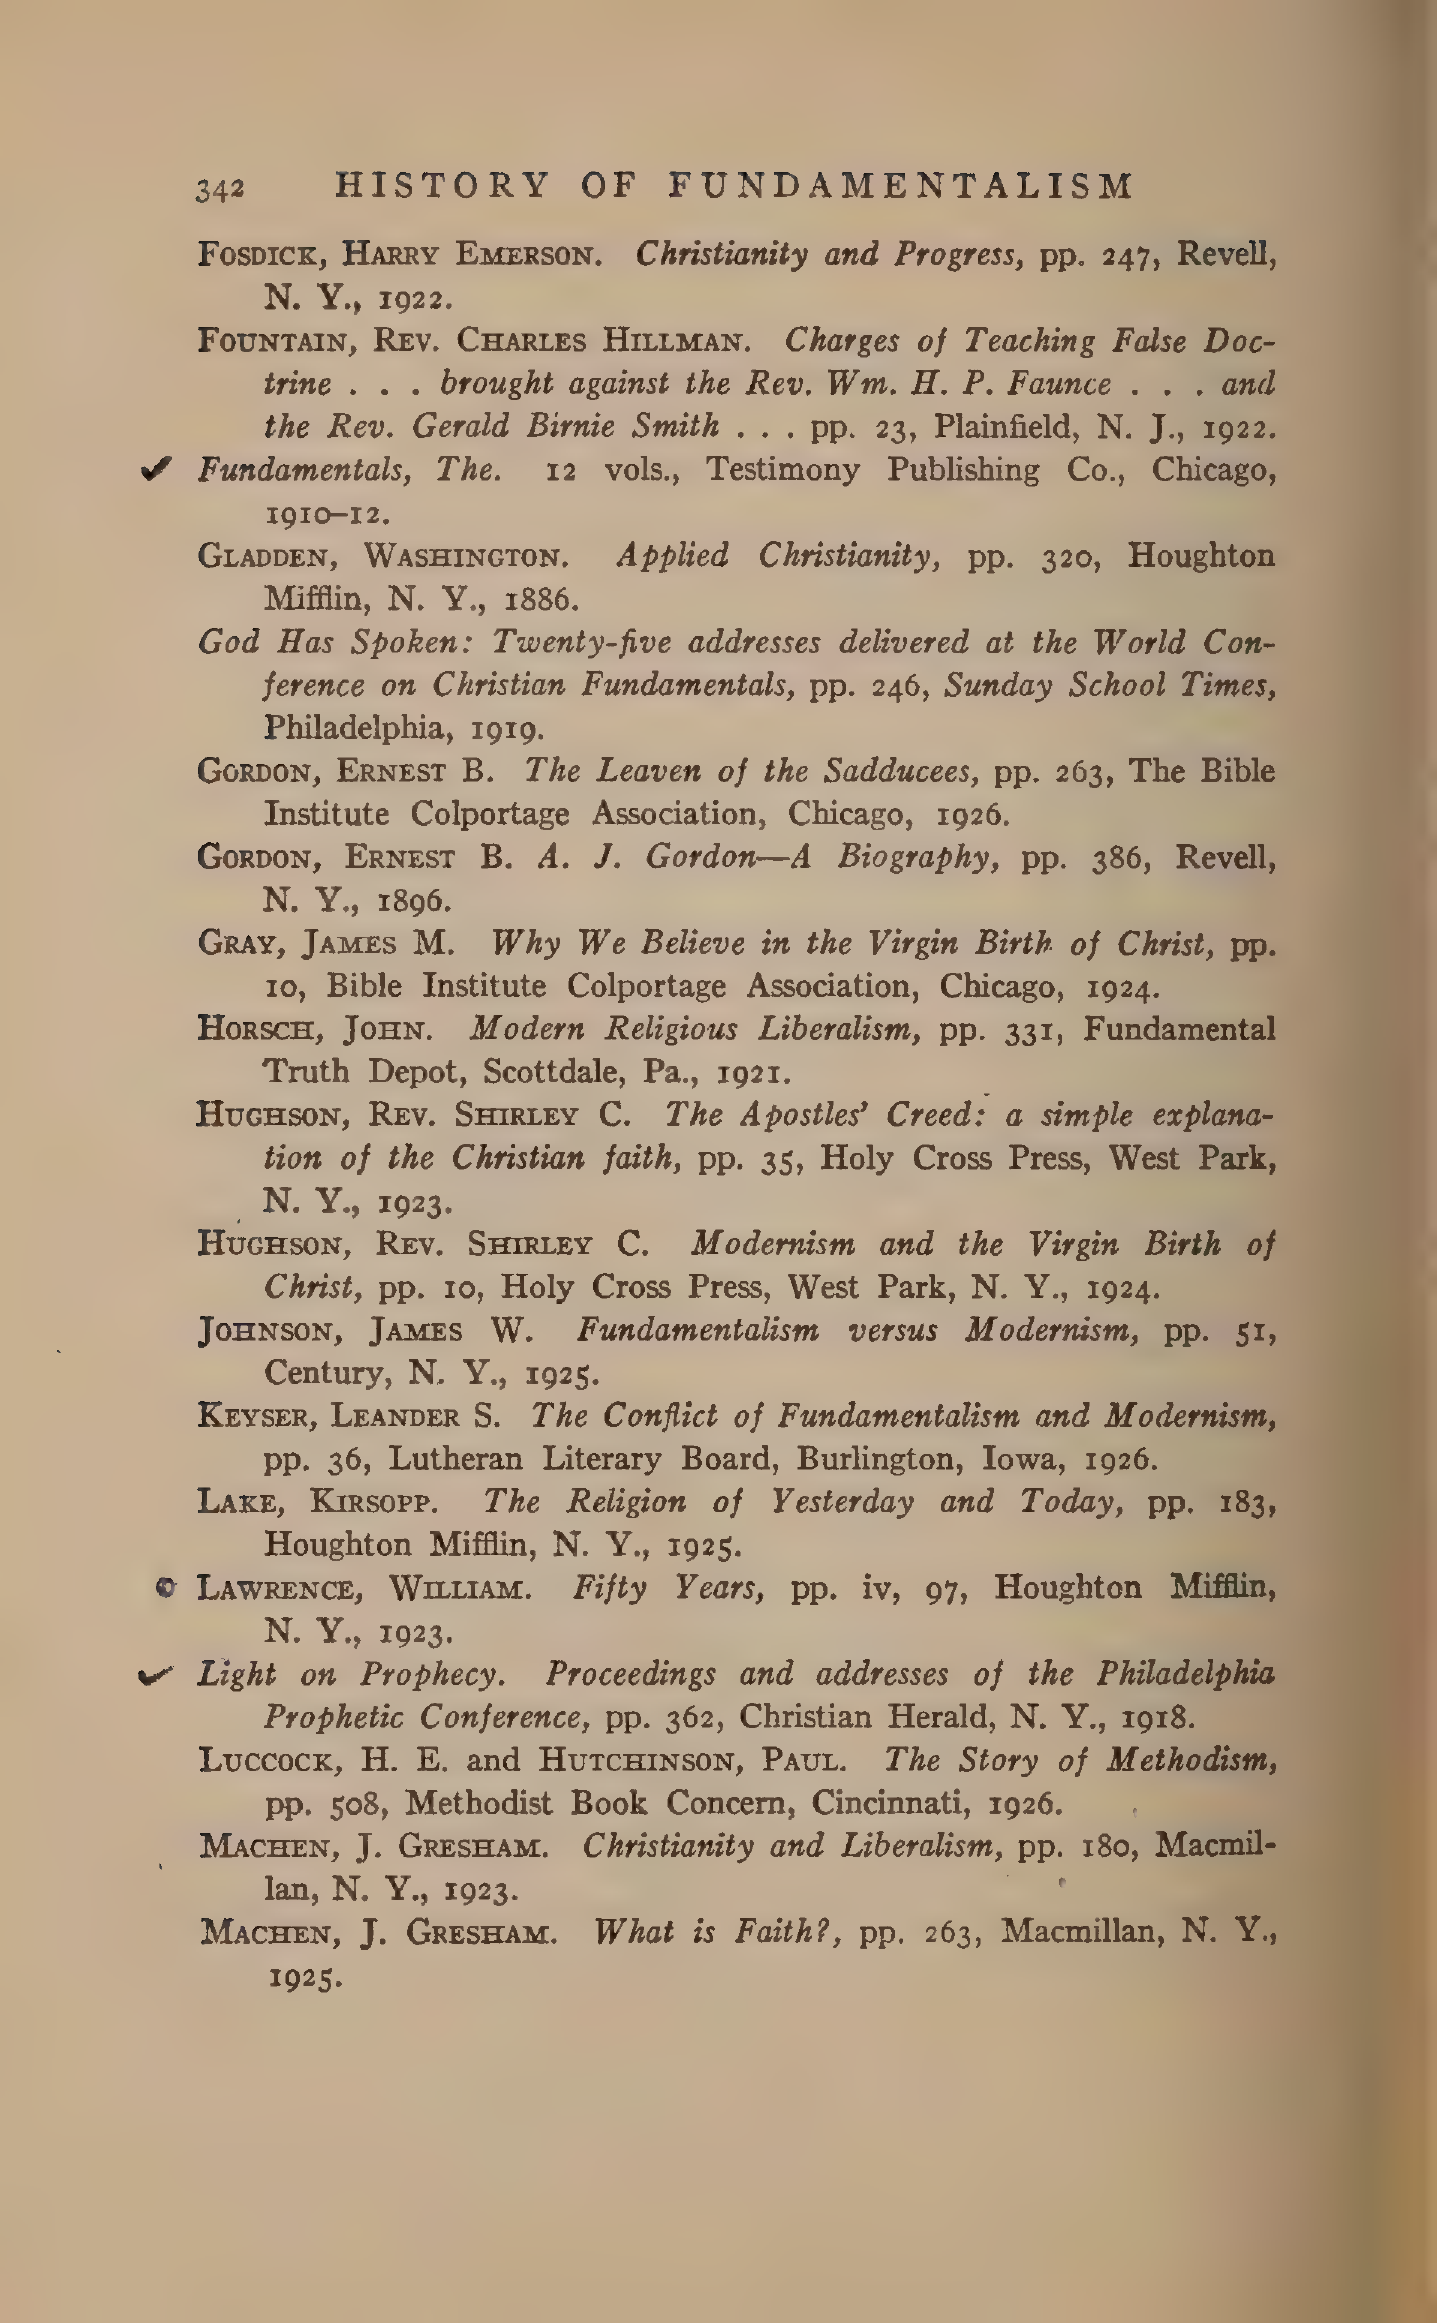 342 HISTORY OF FUNDAMENTALISM
FOSDICK, HARRY EMERSON. Christianity and Progress, pp. 247, Revell,
N. Y., 1922.
FOUNTAIN, REV. CHARLES HILLMAN. Charges of Teaching False Doc-
trine . . . brought against the Rev. Wm. H. P. Faunce . . . and
the Rev. Gerald Birnie Smith . . . pp. 23, Plainfield, N. J., 1922.
✓ Fundamentals, The. 12 vols., Testimony Publishing Co., Chicago,
1910–12.
GLADDEN, WASHINGTON. Applied Christianity, pp. 320, Houghton
Mifflin, N. Y., 1886.
God Has Spoken: Twenty-five addresses delivered at the World Con-
ference on Christian Fundamentals, pp. 246, Sunday School Times,
Philadelphia, 1919.
GORDON, ERNEST B. The Leaven of the Sadducees, pp. 263, The Bible
Institute Colportage Association, Chicago, 1926.
GORDON, ERNEST B. A. J. Gordon—A Biography, pp. 386, Revell,
N. Y., 1896.
GRAY, JAMES M. Why We Believe in the Virgin Birth of Christ, pp.
10, Bible Institute Colportage Association, Chicago, 1924.
HORSCH, JOHN. Modern Religious Liberalism, pp. 331, Fundamental
Truth Depot, Scottdale, Pa., 1921.
HUGHSON, REV. SHIRLEY C. The Apostles' Creed: a simple explana-
tion of the Christian faith, pp. 35, Holy Cross Press, West Park,
N. Y., 1923.
HUGHSON, REV. SHIRLEY C. Modernism and the Virgin Birth of
Christ, pp. 10, Holy Cross Press, West Park, N. Y., 1924.
JOHNSON, JAMES W. Fundamentalism versus Modernism, pp. 51,
Century, N. Y., 1925.
KEYSER, LEANDER S. The Conflict of Fundamentalism and Modernism,
pp. 36, Lutheran Literary Board, Burlington, Iowa, 1926.
LAKE, KIRSOPP. The Religion of Yesterday and Today, pp. 183,
Houghton Mifflin, N. Y., 1925.
LAWRENCE, WILLIAM. Fifty Years, pp. iv, 97, Houghton Mifflin,
N. Y., 1923.
✓ Light on Prophecy. Proceedings and addresses of the Philadelphia
Prophetic Conference, pp. 362, Christian Herald, N. Y., 1918.
LUCCOCK, H. E. and HUTCHINSON, PAUL. The Story of Methodism,
pp. 508, Methodist Book Concern, Cincinnati, 1926.
MACHEN, J. GRESHAM. Christianity and Liberalism, pp. 180, Macmil-
lan, N. Y., 1923.
MACHEN, J. GRESHAM. What is Faith?, pp. 263, Macmillan, N. Y.,
1925.